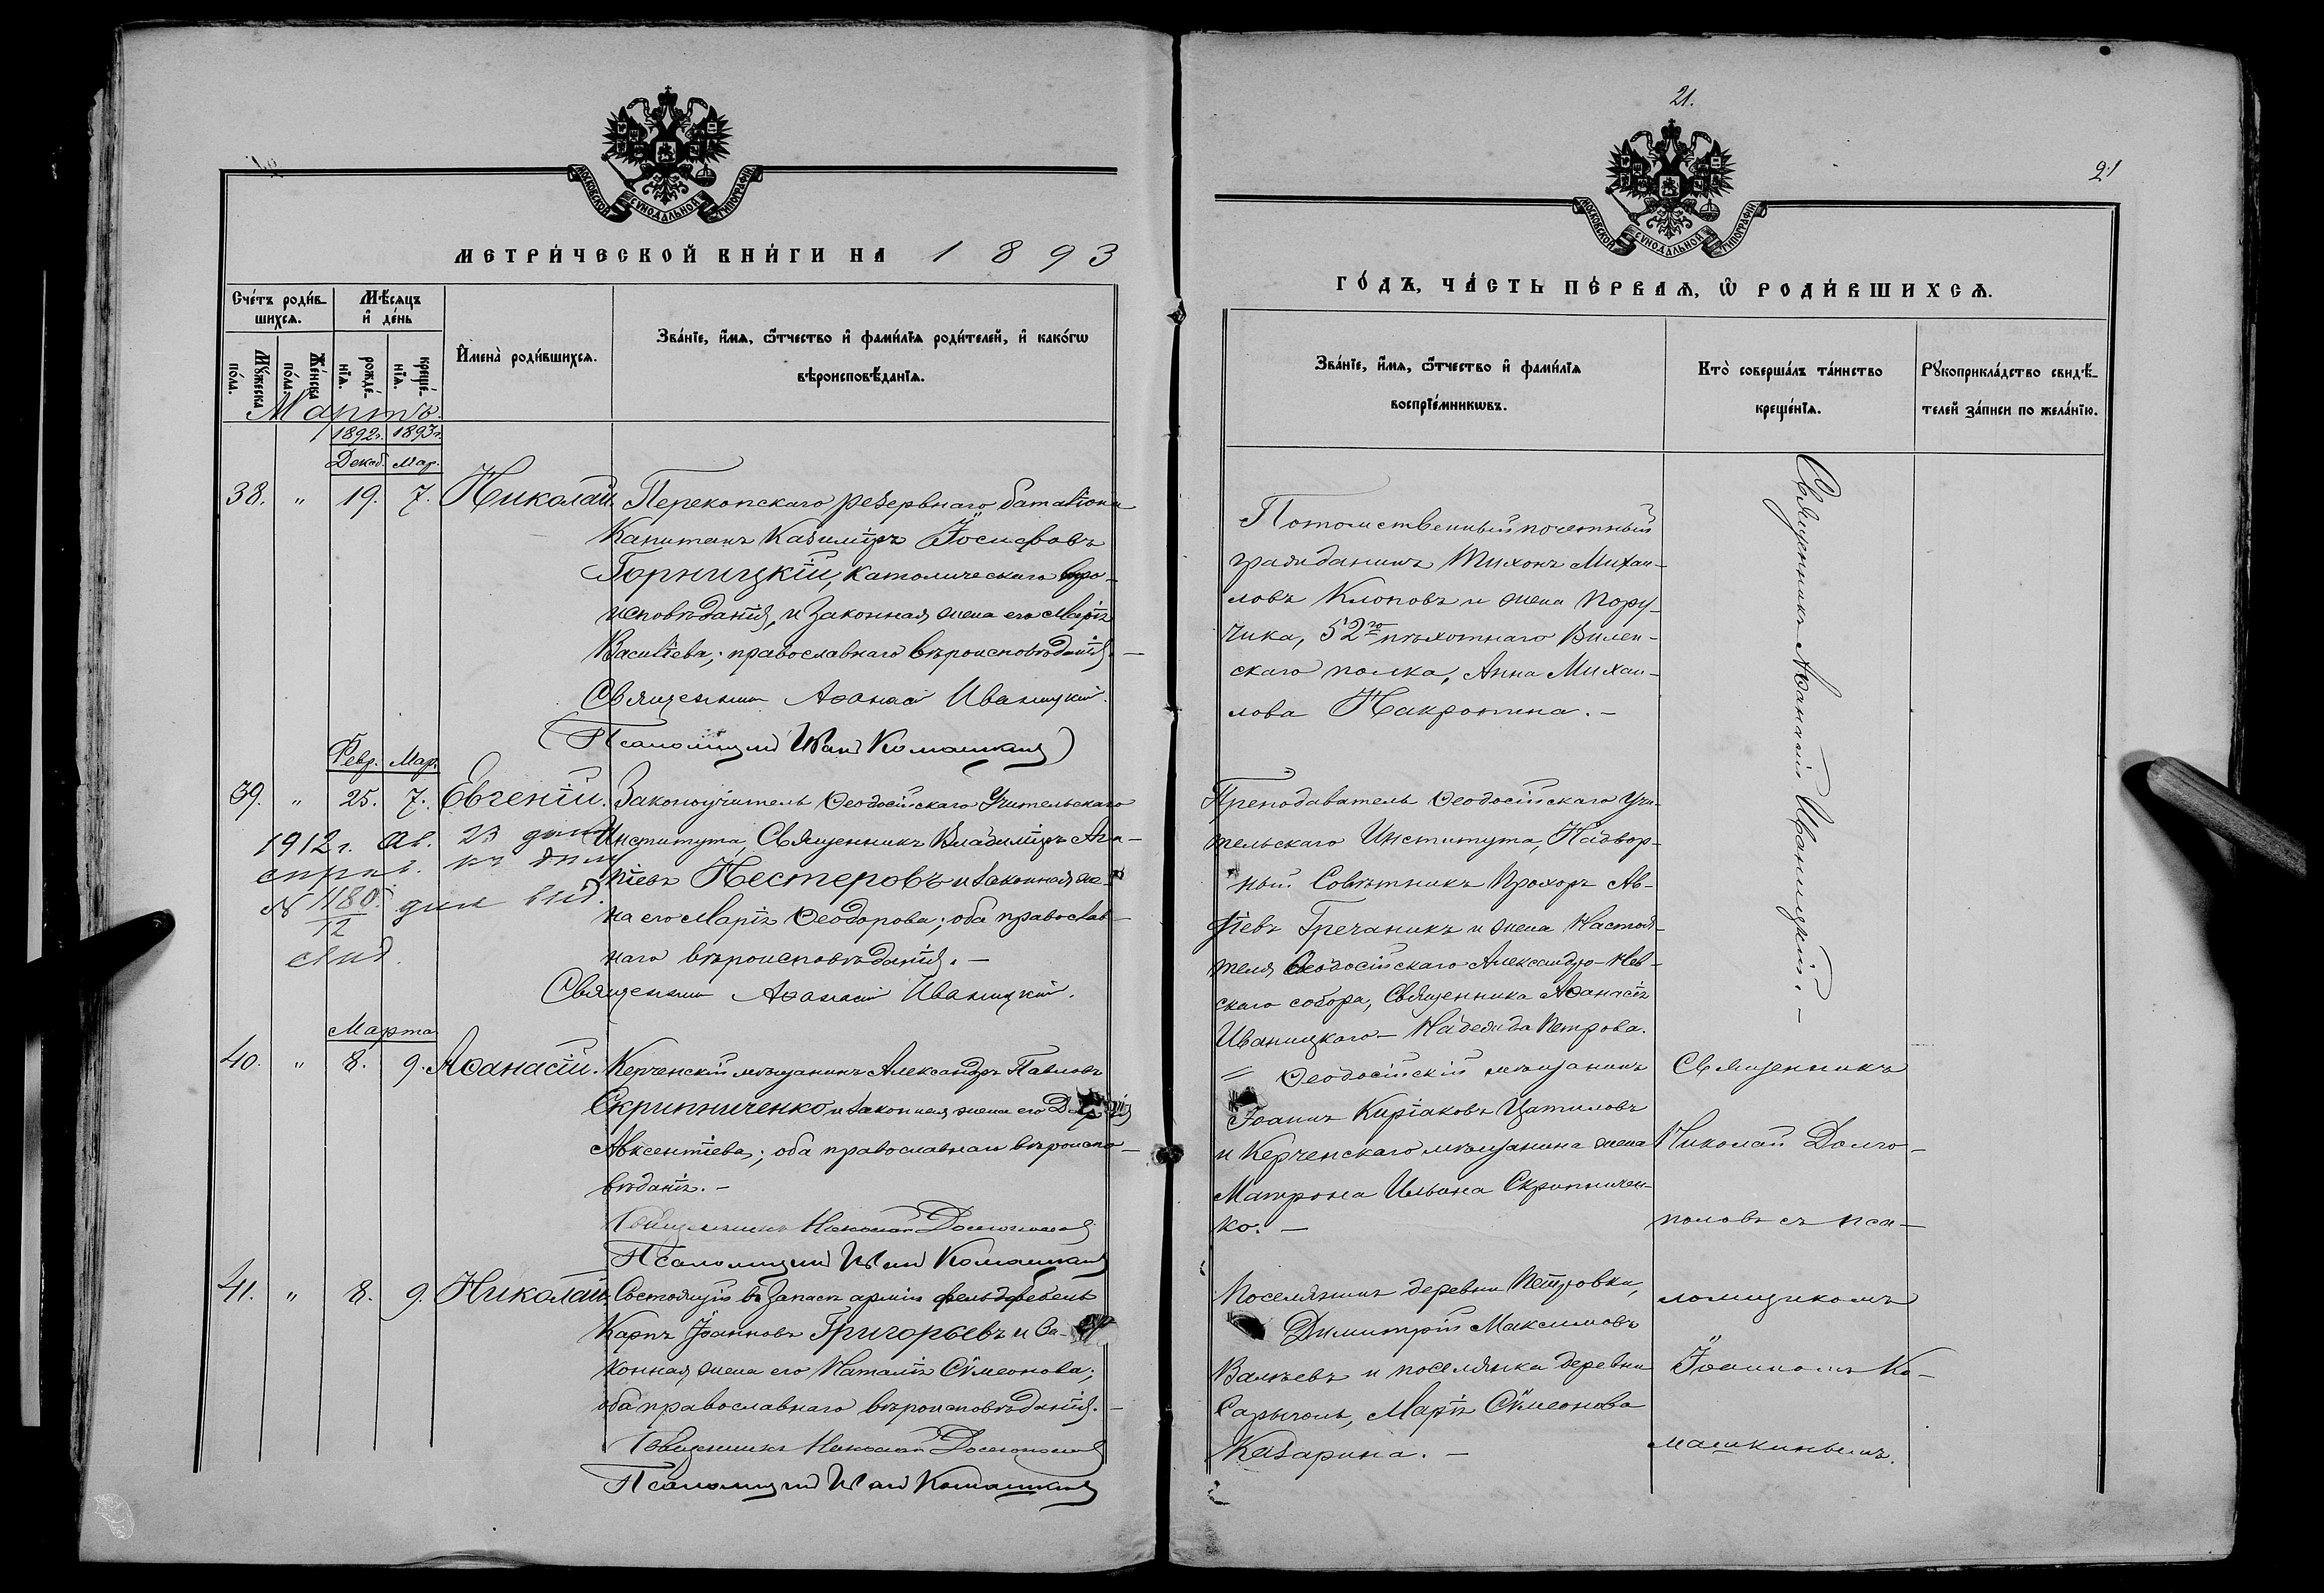 МОСКОВСКОЙ СѴНОДАЛЬНОЙ ТИПОГРАФІИ
МЕТРИ́ЧЕСКОЙ КНИ́ГИ НА 1893
Сче́тъ роди́вшихсѧ.
Мѣ́сѧцъ и҆ де́нь
И҆мена̀ роди́вшихсѧ.
Зва́нїе, и҆́мѧ, ѻ҆́тчество и҆ фами́лїѧ роди́телей, и҆ како́гѡ
вѣроисповѣ́данїѧ.
Мꙋ́жеска по́ла.
Же́нска по́ла.
рожде́нїѧ.
креще́нїѧ.
Мартъ.
1892г. 1893г.
Декаб. Мар.
38. " 19. 7. Николай. Перекопскаго резервнаго баталіона
Капитанъ Казиміръ Іосифовъ
Горницкій, католическаго вѣро-
исповѣданія, и законная жена его Марія
Василіева; православнаго вѣроисповѣданія. —
Священникъ Аѳанасій Иваницкій.
(Псаломщикъ Иванъ Комашкинъ)
Февр. Мар.
39. " 25. 7. Евгеній. Законоучитель Ѳеодосійскаго Учительскаго
Института, Священникъ Владиміръ Ага-
піевъ Нестеровъ и законная же-
на его Марія Ѳеодорова; оба православ-
наго вѣроисповѣданія. —
Священникъ Аѳанасій Иваницкій.
1912 г. Ав. 23 дня
№ 1180
12
Марта
40. " 8. 9. Аѳанасій. Керченскій мѣщанинъ Александръ Павловъ
Скрипниченко и законная жена его
Авксентіева; оба православнаго вѣроиспо-
вѣданія. —
Священникъ Николай Долгополовъ
Псаломщикъ Иванъ Комашкинъ
41. " 8. 9. Николай. Состоящій въ запасѣ арміи фельдфебель
Карпъ Іоанновъ Григорьевъ и за-
конная жена его Наталія Сѵмеонова;
оба православнаго вѣроисповѣданія. —
Священникъ Николай Долгополовъ
Псаломщикъ Иванъ Комашкинъ
21.
21
МОСКОВСКОЙ СѴНОДАЛЬНОЙ ТИПОГРАФІИ
ГО́ДЪ, ЧА́СТЬ ПЕ́РВАѦ, Ѡ҆ РОДИ́ВШИХСѦ.
Зва́нїе, и҆́мѧ, ѻ҆́тчество и҆ фами́лїѧ
воспрїе́мникѡвъ.
Кто̀ соверша́лъ та́инство
креще́нїѧ.
Рꙋкоприкла́дство свидѣ́-
телей за́писи по жела́нїю.
Потомственный почетный
гражданинъ Тихонъ Михаи-
ловъ Клоповъ и жена Пору-
чика, 52го пѣхотнаго Вилен-
скаго полка, Анна Михаи-
лова Накропина. —
Священникъ Аѳанасій Иваницкій. —
Преподаватель Ѳеодосійскаго Учи-
тельскаго Института, Надвор-
ный Совѣтникъ Прохоръ Ав-
діевъ Гречаникъ и жена Настоя-
теля Ѳеодосійскаго Александро-Нев-
скаго собора, Священника Аѳанасія
Иваницкаго — Надежда Петрова.
Ѳеодосійскій мѣщанинъ
Іоаннъ Киріаковъ Цатиловъ
и Керченскаго мѣщанина жена
Матрона Ильина Скрипничен-
ко. —
Священникъ
Николай Долго-
половъ съ пса-
ломщикомъ
Іоанномъ Ко-
машкинымъ.
Поселянинъ деревни Петровки,
Димитрій Максимовъ
Валѣевъ и поселянка деревни
Сарыголь, Марія Сѵмеонова
Казарина. —